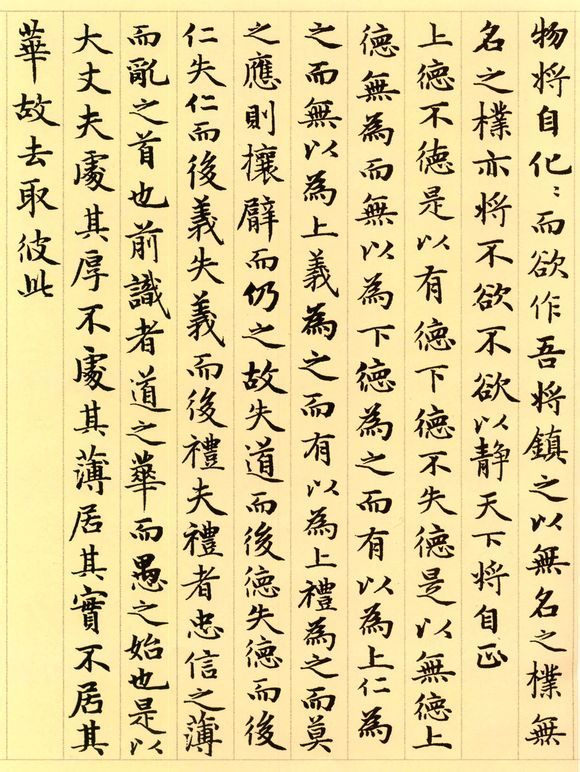 物将自化〻而欲作吾将鎮之以無名之樸無
名之樸亦将不欲不欲以静天下将自正
上徳不徳是以有徳下徳不失徳是以無徳上
徳無為而無以為下徳為之而有以為上仁為
之而無以為上義為之而有以為上禮為之而莫
之應則攘臂而仍之故失道而後徳失徳而後
仁失仁而後義失義而後禮夫禮者忠信之薄
而亂之首也前識者道之華而愚之始也是以
大丈夫處其厚不處其薄居其實不居其
華故去取彼此